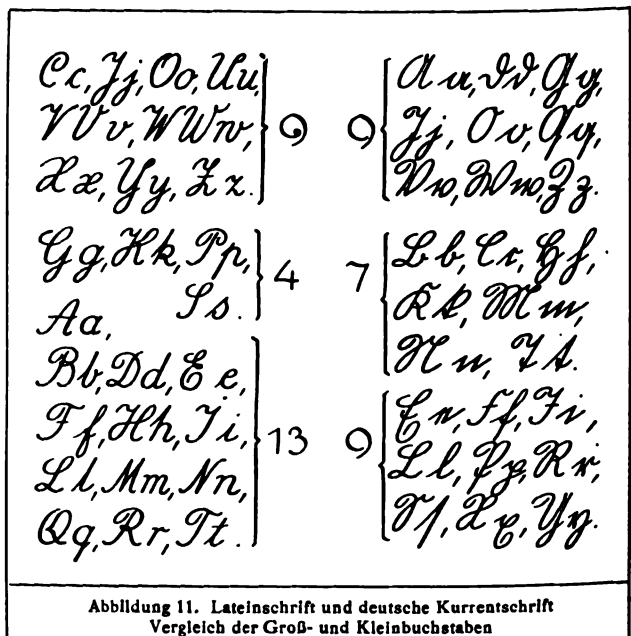 Cc, Jj, Oo, Uu,
VVv, WWw, 9
Xx, Yy, Zz.
Gg, Kk, Pp, 4
Ss.
Aa,
Bb, Dd, Ee,
Ff, Hh, Ii, 13
Ll, Mm, Nn,
Qq, Rr, Tt.
Aa, Dd, Gg,
9 Jj, Oo, Qq,
Vv, Ww, Zz.
Bb, Cc, Hh,
7 Kk, Mm,
Nn, Tt.
Ee, Ff, Ii,
9 Ll, Pp, Rr,
Ss, Xx, Yy.
Abbildung 11. Lateinschrift und deutsche Kurrentschrift
Vergleich der Groß- und Kleinbuchstaben